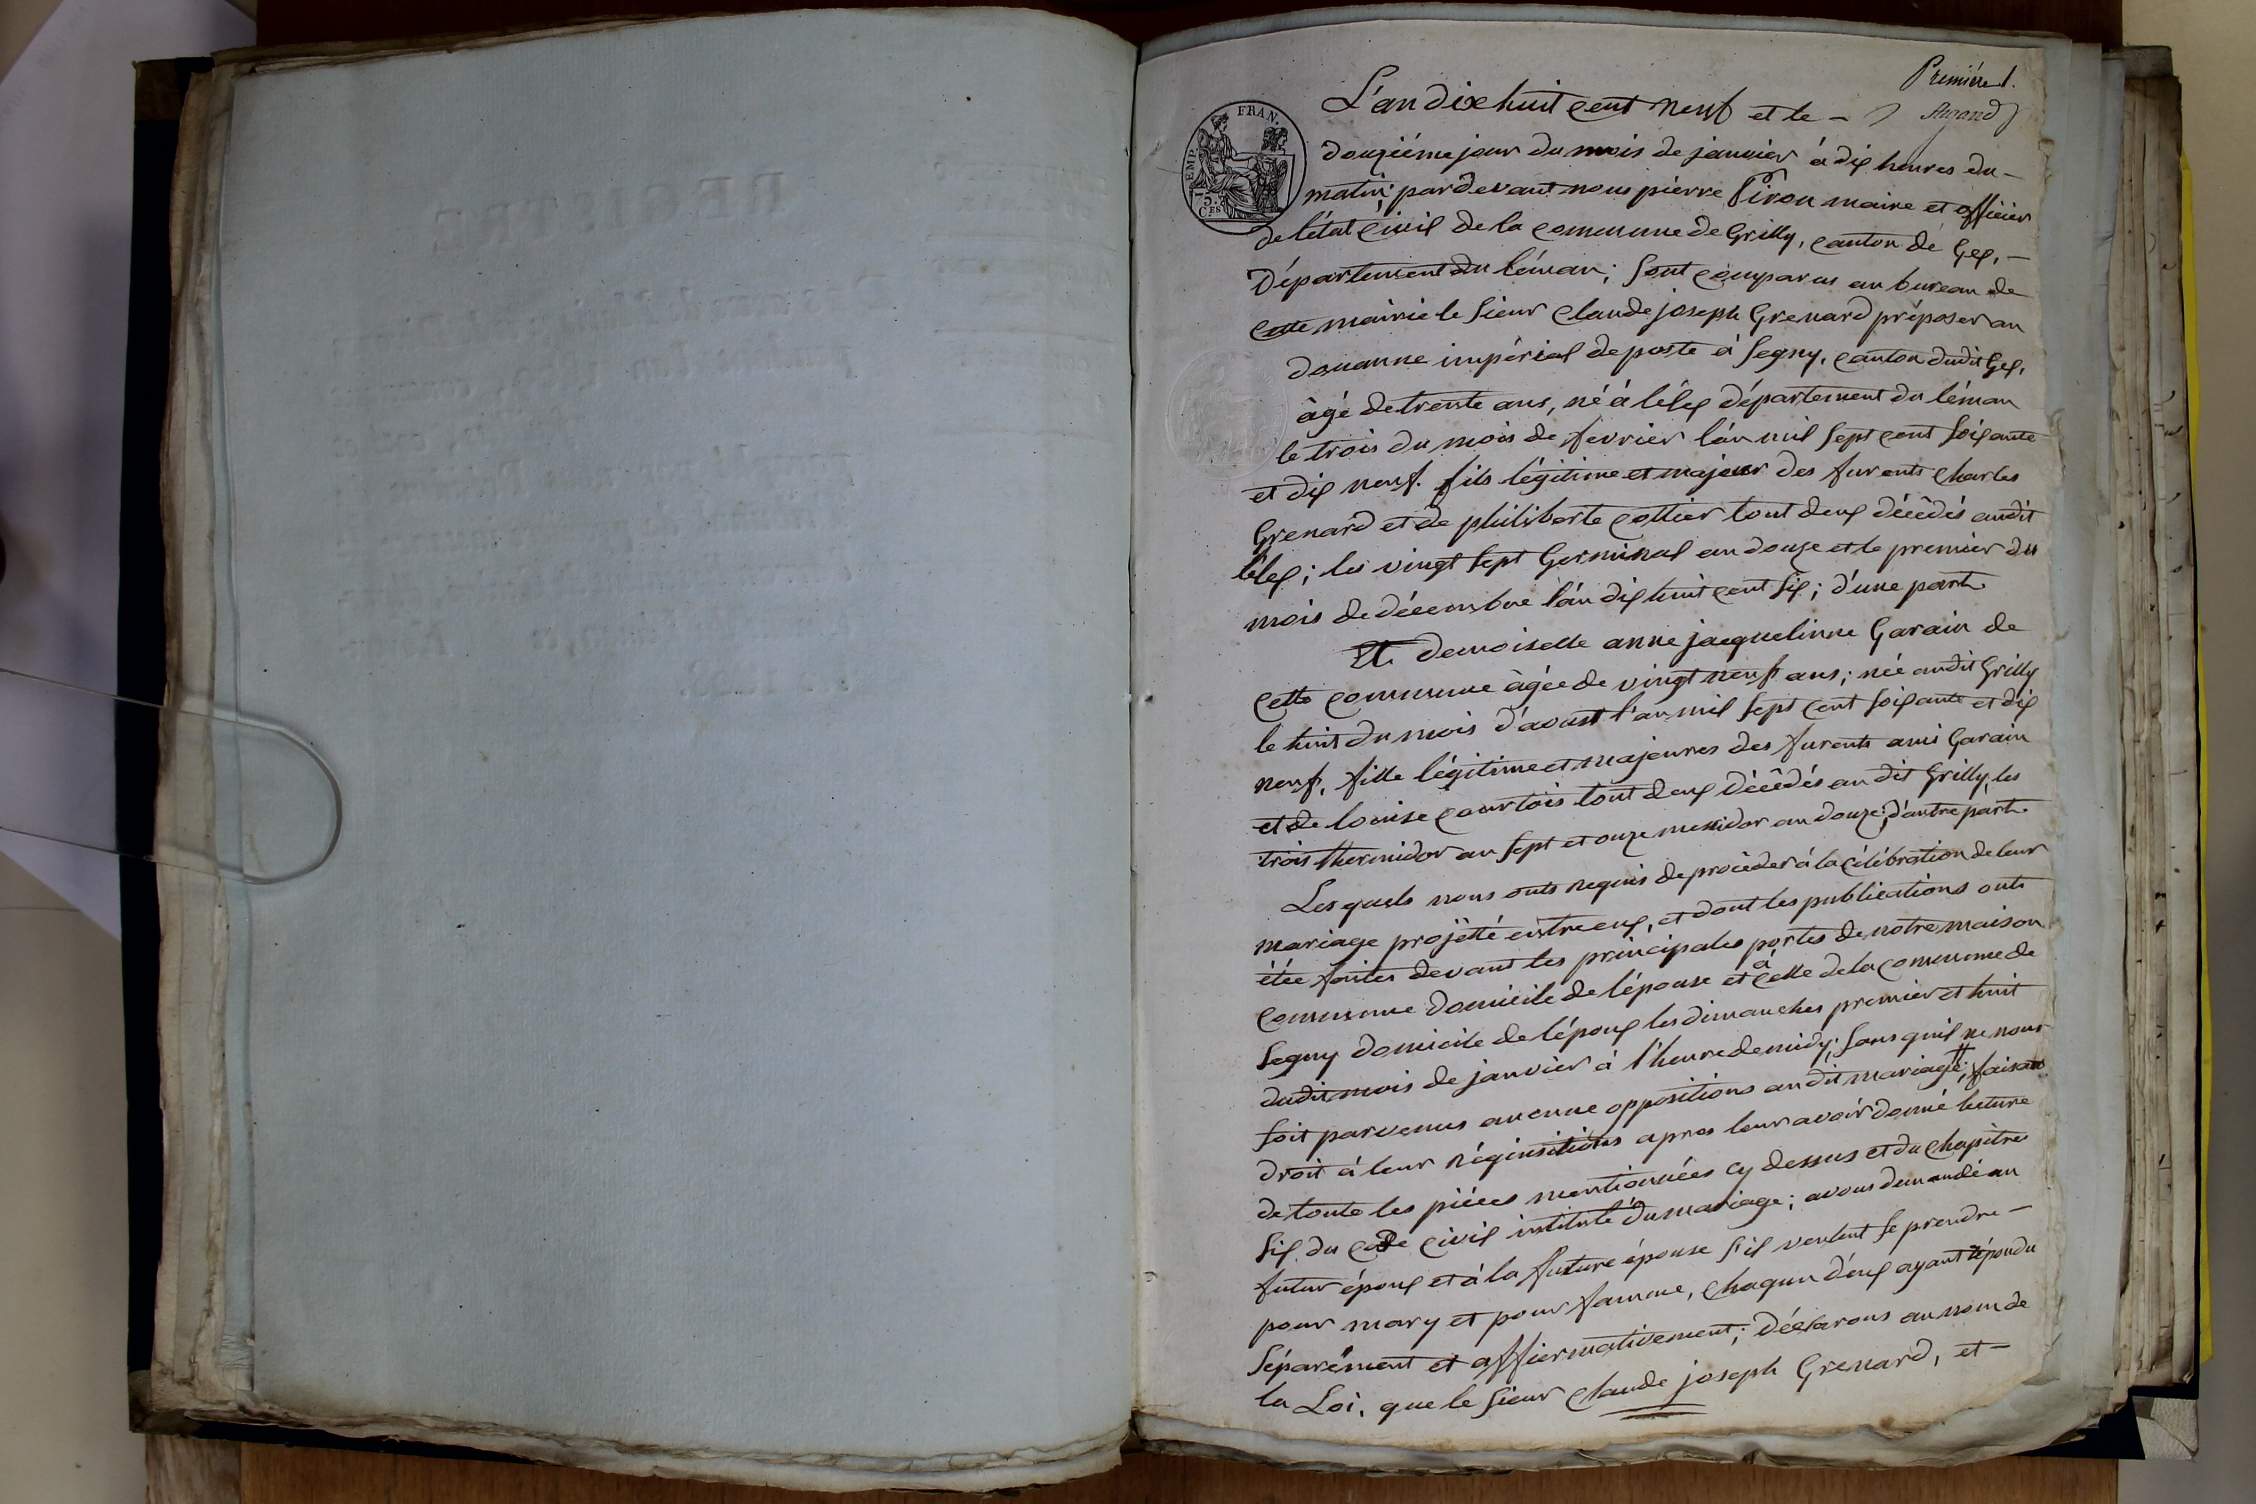 Première 1.
Argand
EMP. FRAN.
75. Ces
L'an dix huit cent neuf et le -
douziéme jour du mois de janvier à dix heures du -
matin; pardevant nous pierre Piron maire et officier
de l'état civil de la commune de Grilly, canton de Gex, -
Département du léman; sont comparus au bureau de
cette mairie le sieur claude joseph Grenard préposer au
douanne impérial de poste à Segny, canton dudit Gex,
âgé de trente ans, né à léléx département du léman
le trois du mois de fevrier l'án mil sept cent soixante
et dix neuf. fils légitime et majeur des furents charles
Grenard et de philiberte cottier tout deux décédés audit
léléx; les vingt sept Germinal an douze et le premier du
mois de décembre l'án dix huit cent six; d'une part
Et demoiselle anne jacquelinne Garain de
cette commune âgée de vingt neuf ans; née audit Grilly
le huit du mois d'aoust l'an mil sept cent soixante et dix
neuf, fille légitime et majeures des furents ami Garain
et de louise courtois tout deux décédés au dit Grilly, les
trois thermidor an sept et onze messidor an douze; d'autre part.
Les quels nous onts requis de procèder à la célébration de leur
mariage projetté entre eux, et dont les publications onts
étée faites devant les principales portes de notre maison
commune domicile de l'épouse et à celle de la commune de
Segny domicile de l'époux les dimanches premier et huit
dudit mois de janvier à l'heure de midy; sans quil ne nous
soit parvenus aucune oppositions au dit mariage; faisant
droit à leur réquisitions apres leur avoir donné lecture
de toute les piéces mentionnées cy dessus et du chapitre
six du code civil intitulé du mariage; avons demandé au
futur époux et à la future épouse s'il veulent se prendre -
pour mary et pour famme, chaqun d'eux ayant répondu
séparément et affiermativement; déclarons au nom de
la Loi, que le sieur claude joseph Grenard, et -